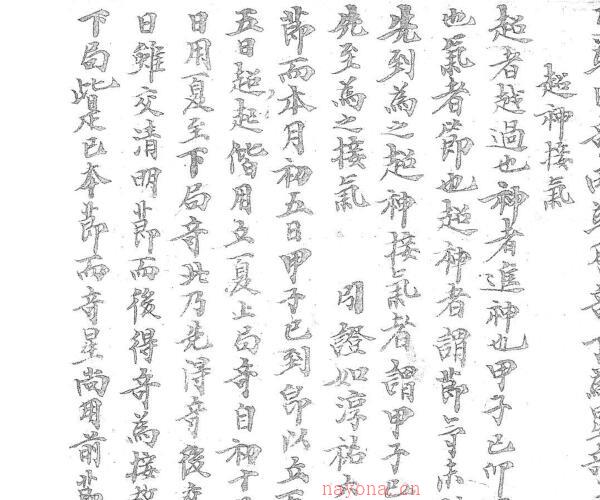 超神接氣
超者越過也神者進神也甲子己卯
也氣者節也超神者謂節令未
先到為之超神接氣者謂甲子己
先至為之接氣 引證如淳祐
節而本月初五日甲子已到即以立夏
五日超起偕用立夏上局奇自初十
日用夏至下局奇此乃先得奇後交
日雖交清明節而後得奇為接氣
下局此是已本節而奇星尚用前節
nayona.cn